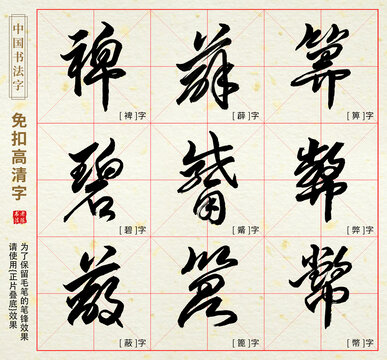 中国书法字
免扣高清字
为了保留毛笔的笔锋效果
请使用[正片叠底]效果
裨 薜 箅
[ 裨 ]字 [ 薜 ]字 [ 箅 ]字
碧 觱 弊
[ 碧 ]字 [ 觱 ]字 [ 弊 ]字
蔽 篦 幣
[ 蔽 ]字 [ 篦 ]字 [ 幣 ]字